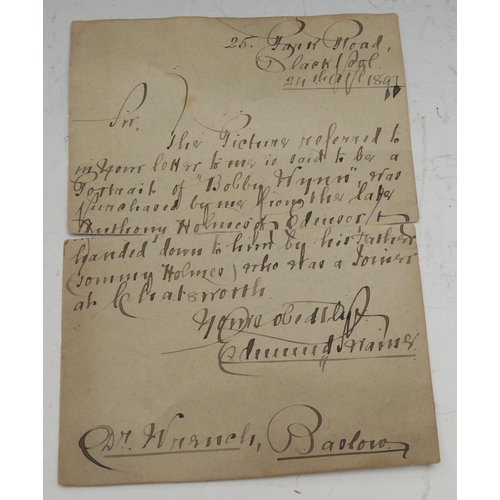 25. Park Road,
Blackpool.
24th 1891
Sir,
The Picture referred to
in your letter to me is said to be a
Portrait of "Bobby Wynn" was
Purchased by me from the late
Anthony Holmes of Edensor, &
handed down to him by his Father
(Tommy Holmes) who was a Joiner
at Chatsworth
Yours obedtly,
Edmund
Dr. Wrench, Baslow